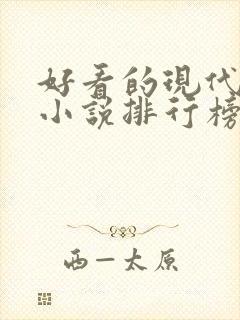 好看的现代
小说排行榜
西一太原